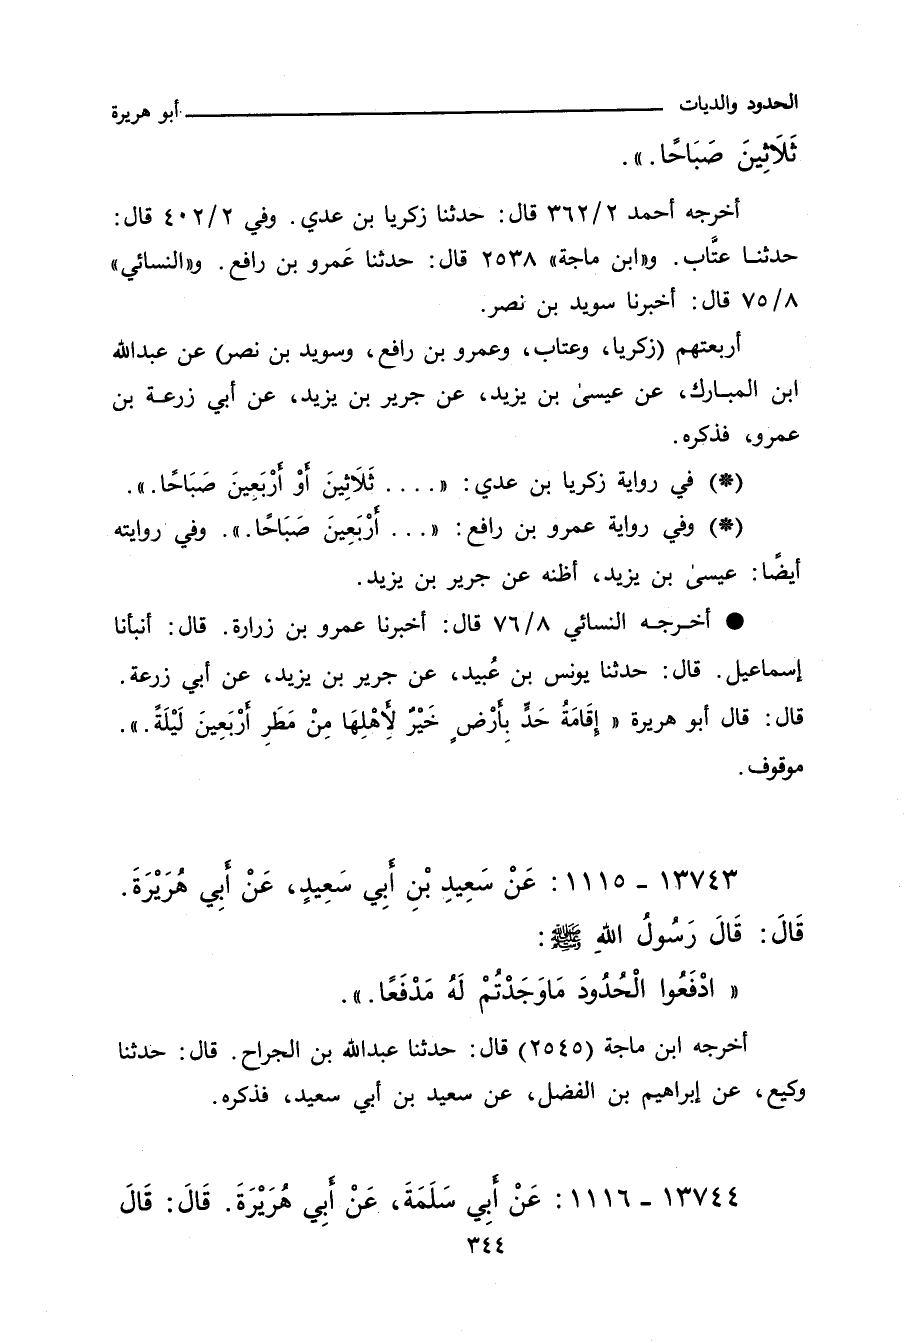 الحدود والديات ــــــــــــــــــــــــــــــــ أبو هريرة
ثَلَاثِينَ صَبَاحًا.».
أخرجه أحمد ٣٦٢/٢ قال: حدثنا زكريا بن عدي. وفي ٤٠٢/٢ قال:
حدثنـا عتَّاب. و«ابن ماجة» ٢٥٣٨ قال: حدثنا عَمرو بن رافع. و«النسائي»
٧٥/٨ قال: أخبرنا سويد بن نصر.
أربعتهم (زكريا، وعتاب، وعمرو بن رافع، وسويد بن نصر) عن عبدالله
ابن المبـارك، عن عيسىٰ بن يزيد، عن جرير بن يزيد، عن أبي زرعـة بن
عمرو، فذكره.
(*) في رواية زكريا بن عدي: «.... ثَلَاثِينَ أَوْ أَرْبَعِينَ صَبَاحًا.».
(*) وفي رواية عمرو بن رافع: «... أَرْبَعِينَ صَبَاحًا.». وفي روايته
أيضًا: عيسىٰ بن يزيد، أظنه عن جرير بن يزيد.
● أخـرجـه النسائي ٧٦/٨ قال: أخبرنا عمرو بن زرارة. قال: أنبأنا
إسماعيل. قال: حدثنا يونس بن عُبيد، عن جرير بن يزيد، عن أبي زرعة.
قال: قال أبو هريرة « إِقَامَةُ حَدٍّ بِأَرْضٍ خَيْرٌ لِأَهْلِهَا مِنْ مَطَرِ أَرْبَعِينَ لَيْلَةً.».
موقوف.
١٣٧٤٣ - ١١١٥: عَنْ سَعِيدِ بْنِ أَبِي سَعِيدٍ، عَنْ أَبِي هُرَيْرَةَ.
قَالَ: قَالَ رَسُولُ اللهِ ﷺ:
« ادْفَعُوا الْحُدُودَ مَاوَجَدْتُمْ لَهُ مَدْفَعًا.».
أخرجه ابن ماجة (٢٥٤٥) قال: حدثنا عبدالله بن الجراح. قال: حدثنا
وكيع، عن إبراهيم بن الفضل، عن سعيد بن أبي سعيد، فذكره.
١٣٧٤٤ - ١١١٦: عَنْ أَبِي سَلَمَةَ، عَنْ أَبِي هُرَيْرَةَ. قَالَ: قَالَ
٣٤٤